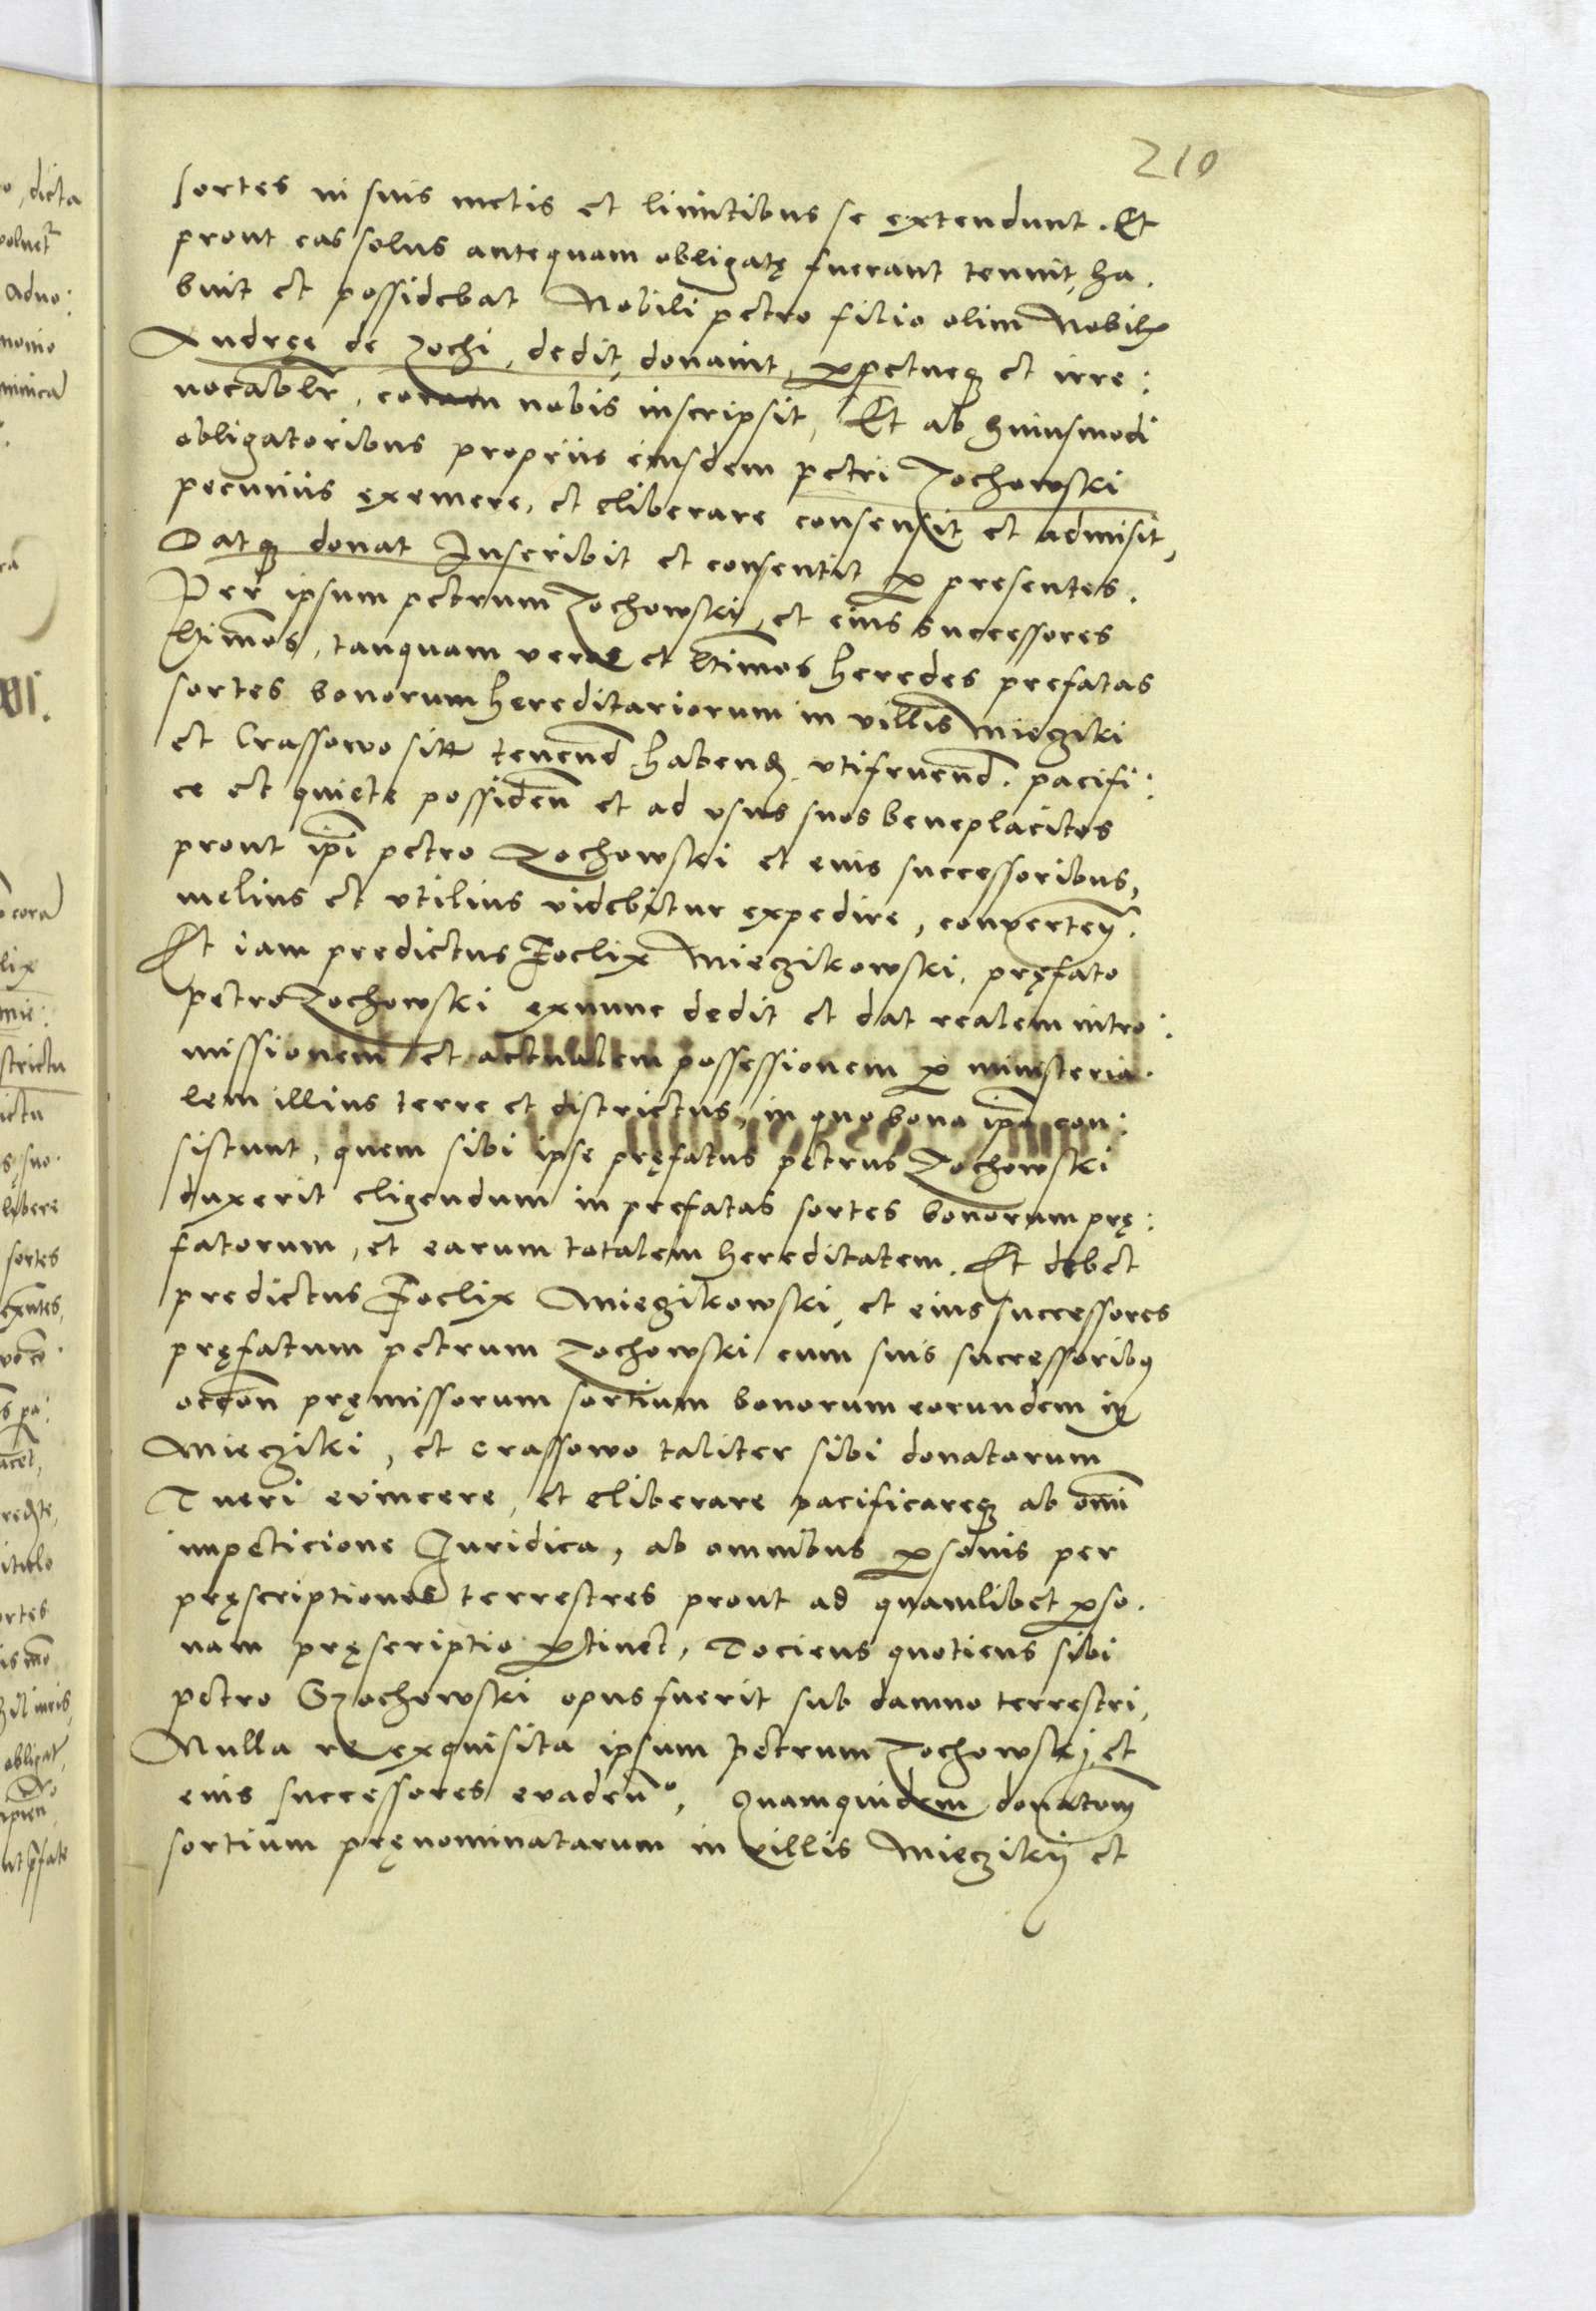 210
sortes in suis metis et limitibus se extendunt. Et
prout eas solus antequam obligatę fuerant tenuit, ha.
buit et possidebat Nobili petro filio olim Nobilis
Andreę de Zochi, dedit, donavit, perpetueque et irre:
vocabiliter, coram nobis inscripsit, Et ab huiusmodi
obligatoribus propriis eiusdem petri Zochowski
pecuniis eximere, et eliberare consensit et admisit,
Datque donat Inscribit et consentit per presentes.
Per ipsum petrum Zochowski, et eius successores
ltimos, tanquam veros et ltimos heredes prefatas
sortes bonorum hereditariorum in villis Miecziki
et Crassowo sitt tenend habend utifruend. pacifi:
ce et quiete possiden et ad usus suos beneplacitos
prout ipi petro Zochowski et eius successoribus,
melius et utilius videbitur expedire, converten.
Et iam predictus Foelix Mieczikowski, pręfato
petro Zochowski exnunc dedit et dat realem intro:
missionem et actualem possessionem per ministeria.
lem illius terre et districtus, in quo bona ipa con:
sistunt, quem sibi ipse pręfatus petrus Zochowski
duxerit eligendum in prefatas sortes bonorum prę:
fatorum, et earum totalem hereditatem. Et debet
predictus Foelix Mieczikowski, et eius successores
pręfatum petrum Zochowski cum suis successoribus
occōn pręmissorum sortium bonorum eorundem in
Mieczilki, et Crassowo taliter sibi donatorum
Tueri evincere, et eliberare pacificareque ab omni
impeticione Iuridica, ab omnibus personis per
pręscriptiones terrestres prout ad quamlibet perso.
nam pręscriptio pertinet, Tociens quotiens sibi
petro Szochowski opus fuerit sub damno terrestri,
Nulla re exquisita ipsum Petrum Zochowski, et
eius successores evaden, Quamquidem donatom
sortium pręnominatarum in villis Mieczikij et